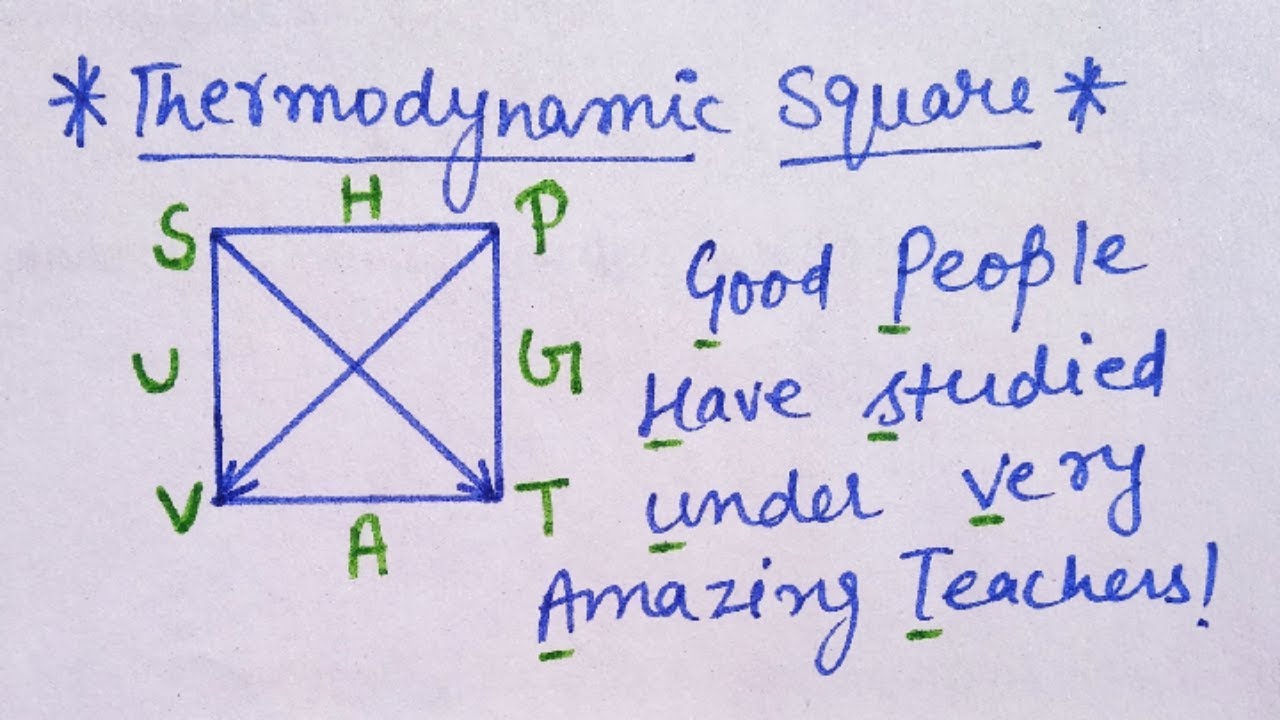 * Thermodynamic Square *
H
S P
U G
V T
A
Good People
Have studied
under very
Amazing Teachers!